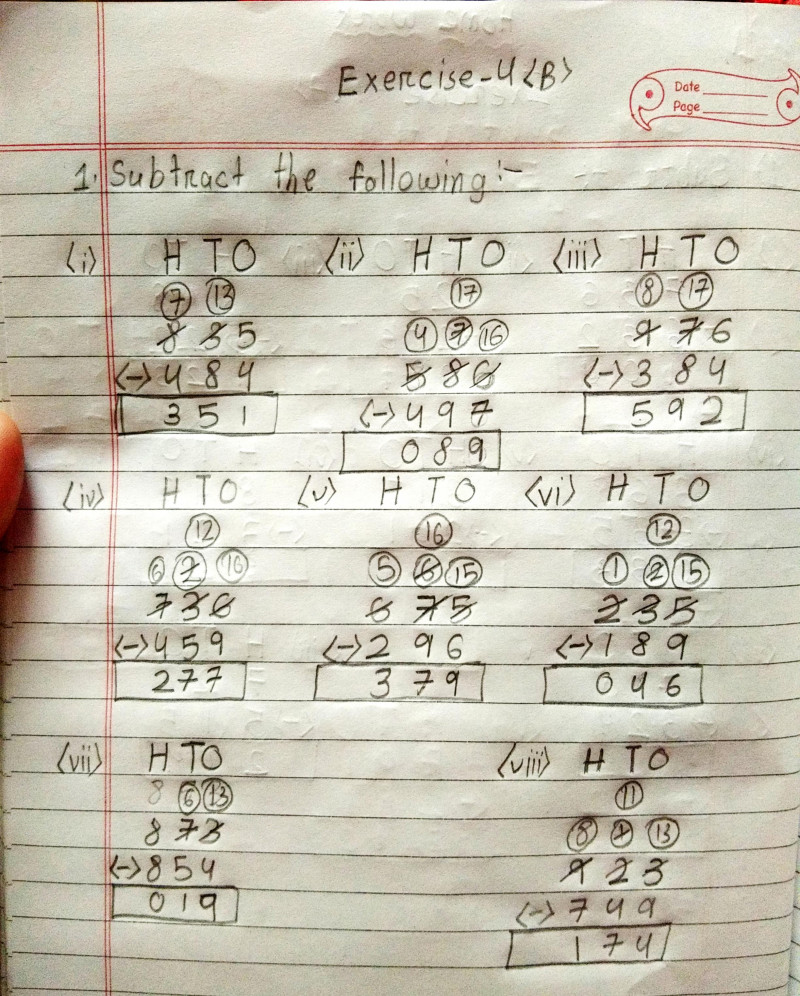 Exercise-4<B>
Date
Page
1. Subtract the following:-
<i> H T O <ii> H T O <iii> H T O
7 13 17 8 17
8 3 5 4 7 16 9 7 6
<-> 4 8 4 5 8 6 <-> 3 8 4
3 5 1 <-> 4 9 7 5 9 2
0 8 9
<iv> H T O <v> H T O <vi> H T O
12 16 12
6 2 16 5 6 15 1 2 15
7 3 6 6 7 5 2 3 5
<-> 4 5 9 <-> 2 9 6 <-> 1 8 9
2 7 7 3 7 9 0 4 6
<vii> H T O <viii> H T O
8 6 13 11
8 7 3 8 1 13
<-> 8 5 4 9 2 3
0 1 9 <-> 7 4 9
1 7 4